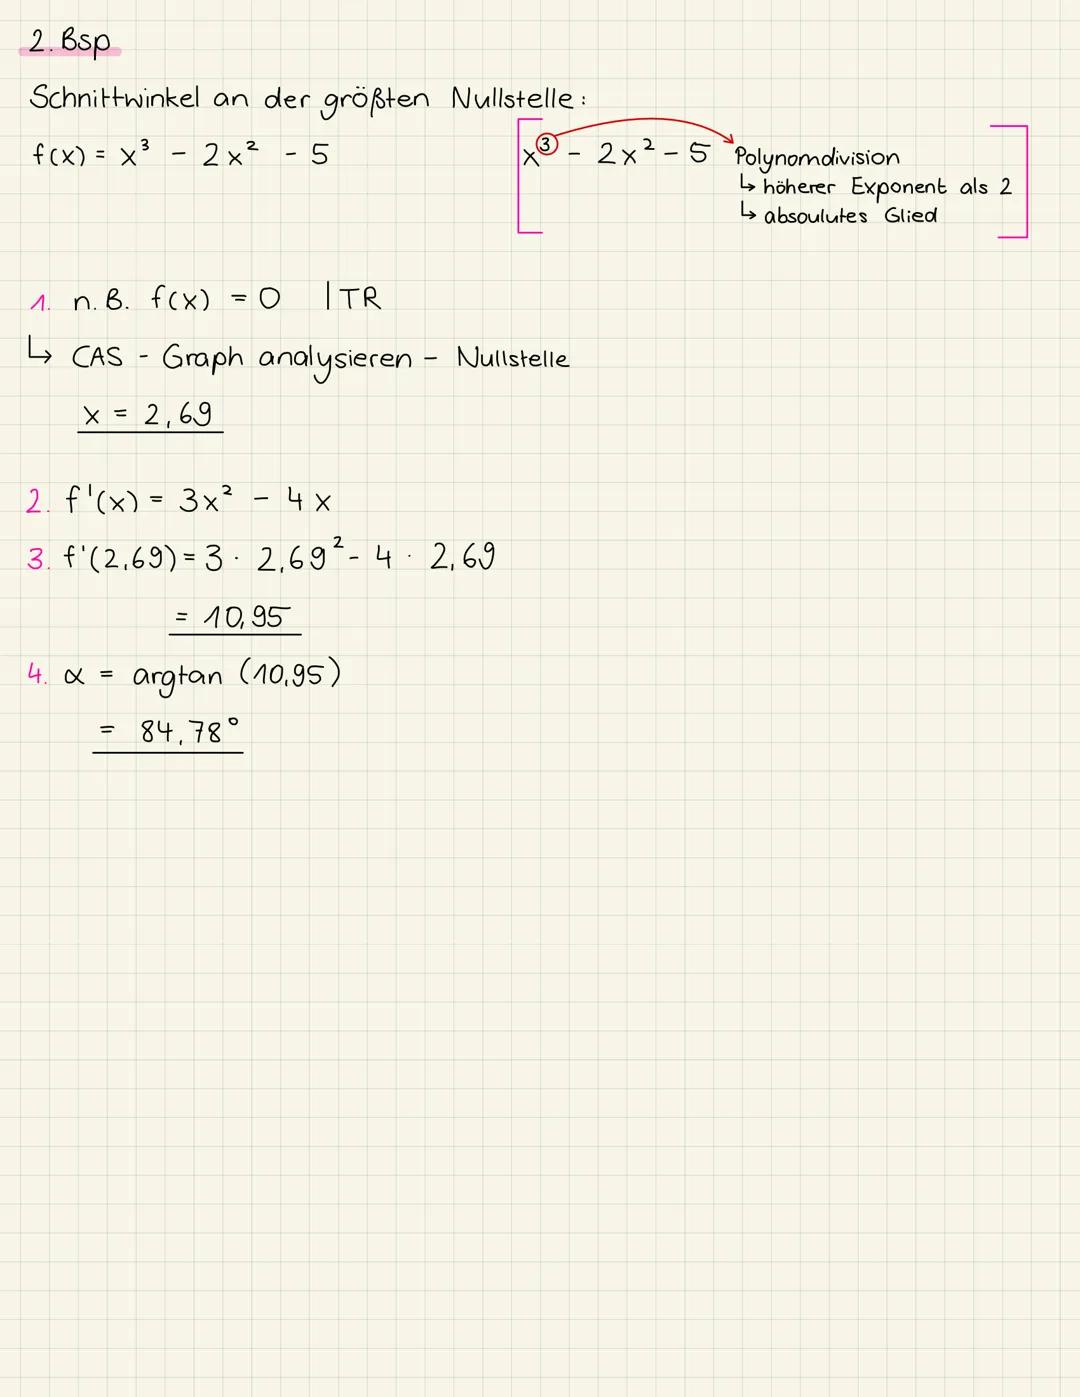 2. Bsp
Schnittwinkel an der größten Nullstelle:
f(x) = x³ - 2x² - 5
x³ - 2x² - 5 Polynomdivision
↳ höherer Exponent als 2
↳ absoulutes Glied
1. n. B. f(x) = 0 | TR
↳ CAS - Graph analysieren - Nullstelle
x = 2,69
2. f'(x) = 3x² - 4x
3. f'(2,69) = 3 · 2,69² - 4 · 2,69
= 10,95
4. α = argtan (10,95)
= 84,78°